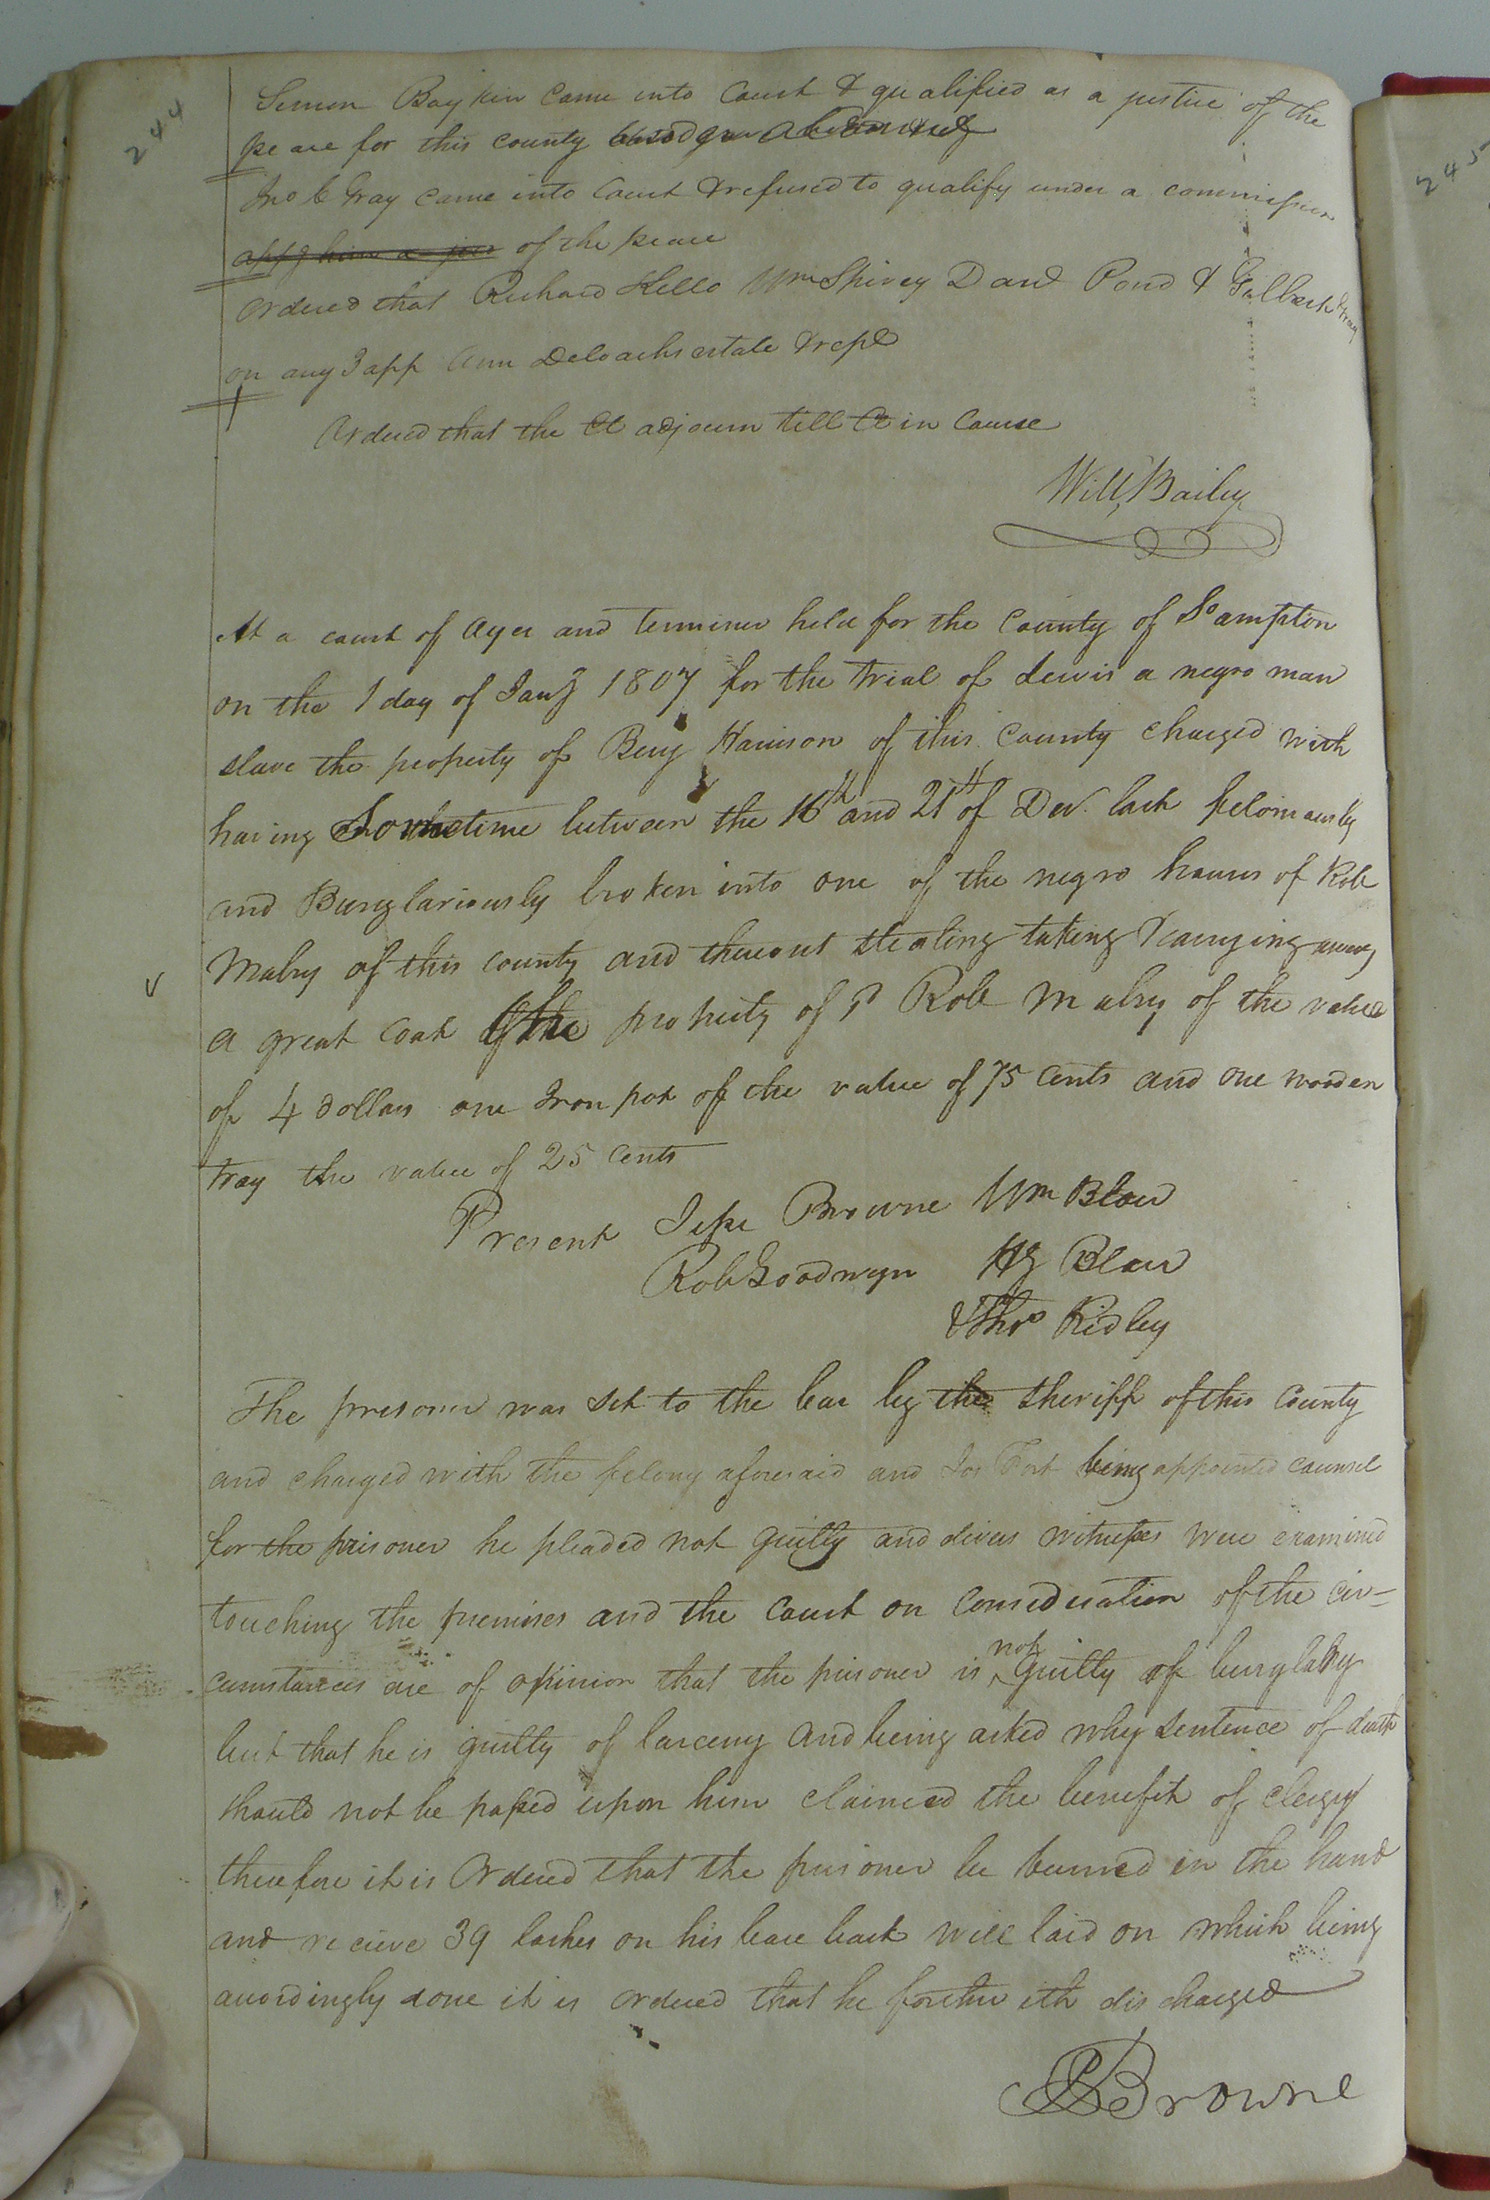 244
245
Simon Boykin Came into Court & qualified as a justice of the
peace for this county
Jno C Gray came into Court & refused to qualify under a commission
of the peace
Ordered that Richard Kello Wm Shivey David Pond & Gilbert Gray
on any 3 app Ann Deloachs estate & repl
Ordered that the Ct adjourn till Ct in Course
Will, Bailey
At a court of Oyer and terminer held for the County of So ampton
on the 1 day of Jany 1807 for the trial of Lewis a negro man
slave the property of Benj Harrison of this County charged with
having Sometime between the 16th and 21st of Dec. last feloniously
and Burglariously broken into one of the negro houses of Rob
Mabry of this county and thereout stealing taking & carrying away
a great coat of the property of sd Rob Mabry of the value
of 4 dollars one Iron pot of the value of 75 cents and one wooden
tray the value of 25 cents
Present Jesse Browne Wm Blow
Rob Goodwyn Hy Blow
& Thos Ridley
The prisoner was set to the bar by the sheriff of this County
and charged with the felony aforesaid and Jos Fort being appointed counsel
for the prisoner he pleaded not guilty and divers witnesses were examined
touching the premises and the Court on consideration of the cir=
cumstances are of opinion that the prisoner is not guilty of burglary
but that he is guilty of larceny and being asked why sentence of death
should not be passed upon him claimed the benefit of clergy
therefore it is Ordered that the prisoner be burned in the hand
and recieve 39 lashes on his bare back well laid on which being
accordingly done it is ordered that he forthwith discharged
Browne